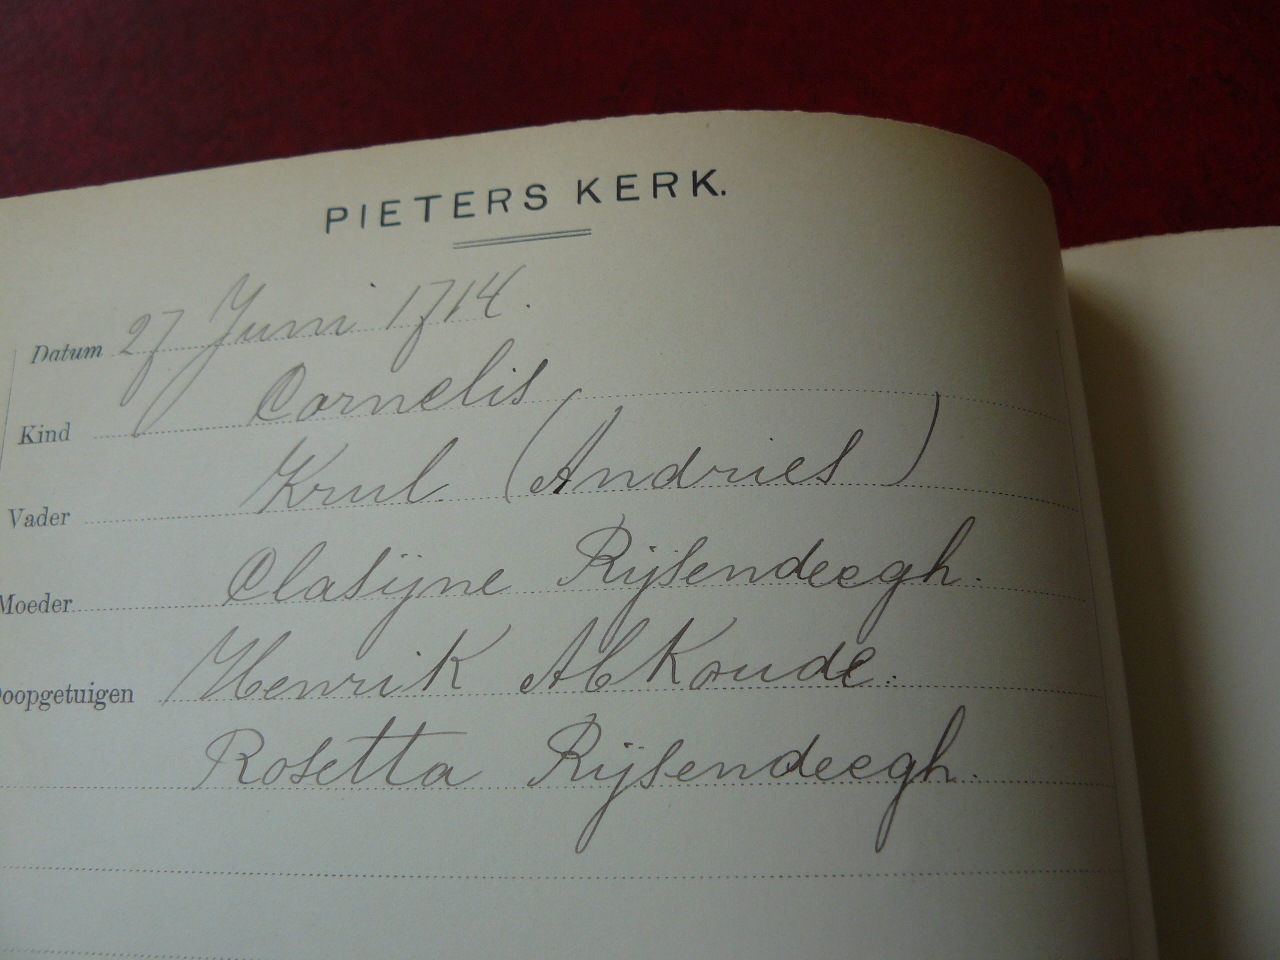 PIETERS KERK.
Datum 27 Juni 1714.
Kind Cornelis
Vader Krul (Andries)
Moeder Clasijne Rijsendeegh.
Doopgetuigen Henrik Abkoude.
Rosetta Rijsendeegh.